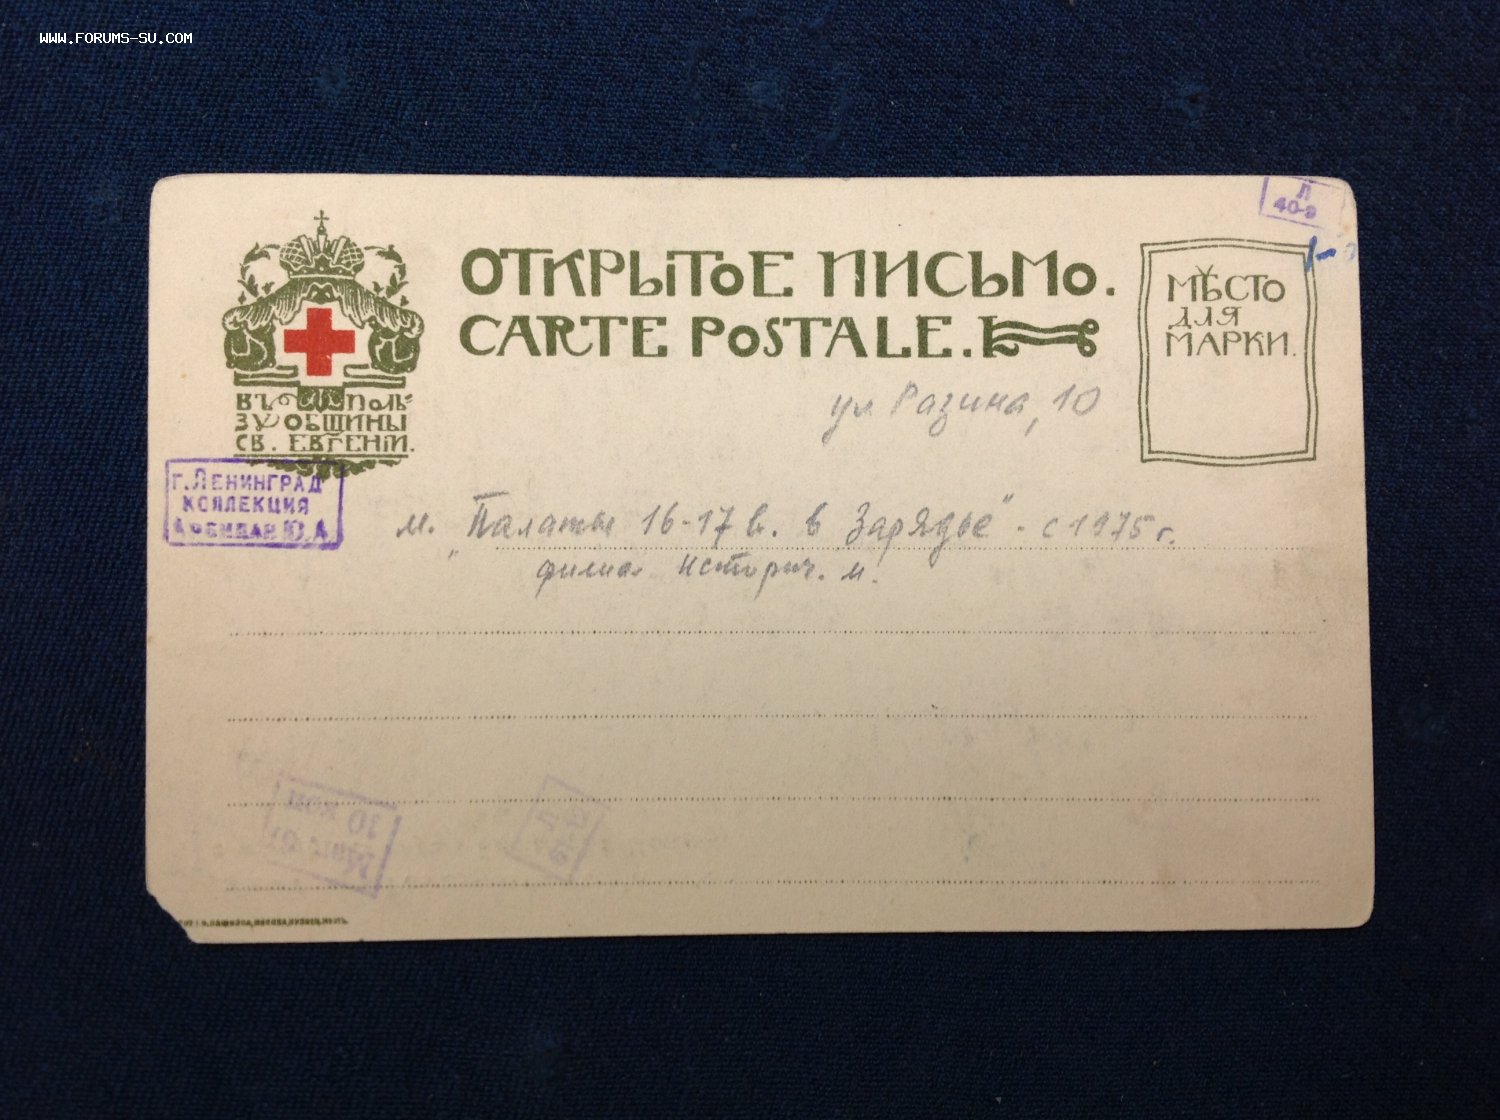 WWW.FORUMS-SU.COM
Л
40-
ОТКРЫТОЕ ПИСЬМО.
CARTE POSTALE.
МѢСТО
ДЛЯ
МАРКИ.
ВЪ ПОЛЬ-
ЗУ ОБЩИНЫ
СВ. ЕВГЕНІИ.
ул. Разина, 10
г. ЛЕНИНГРАД
КОЛЛЕКЦИЯ
Ю.А.
м. „Палаты 16-17 в. в Зарядье" - с 1975 г.
филиал историч. м.
10 коп